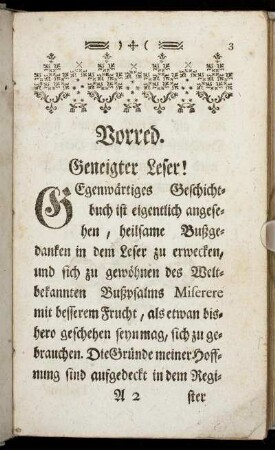 ) + ( 3
Vorred.
Geneigter Leser!
GEgenwärtiges Geschicht-
buch ist eigentlich angese-
hen, heilsame Bußge-
danken in dem Leser zu erwecken,
und sich zu gewöhnen des Welt-
bekannten Bußpsalms Miserere
mit besserem Frucht, als etwan bis-
hero geschehen seyn mag, sich zu ge-
brauchen. Die Gründe meiner Hoff-
nung sind aufgedeckt in dem Regi-
A 2 ster